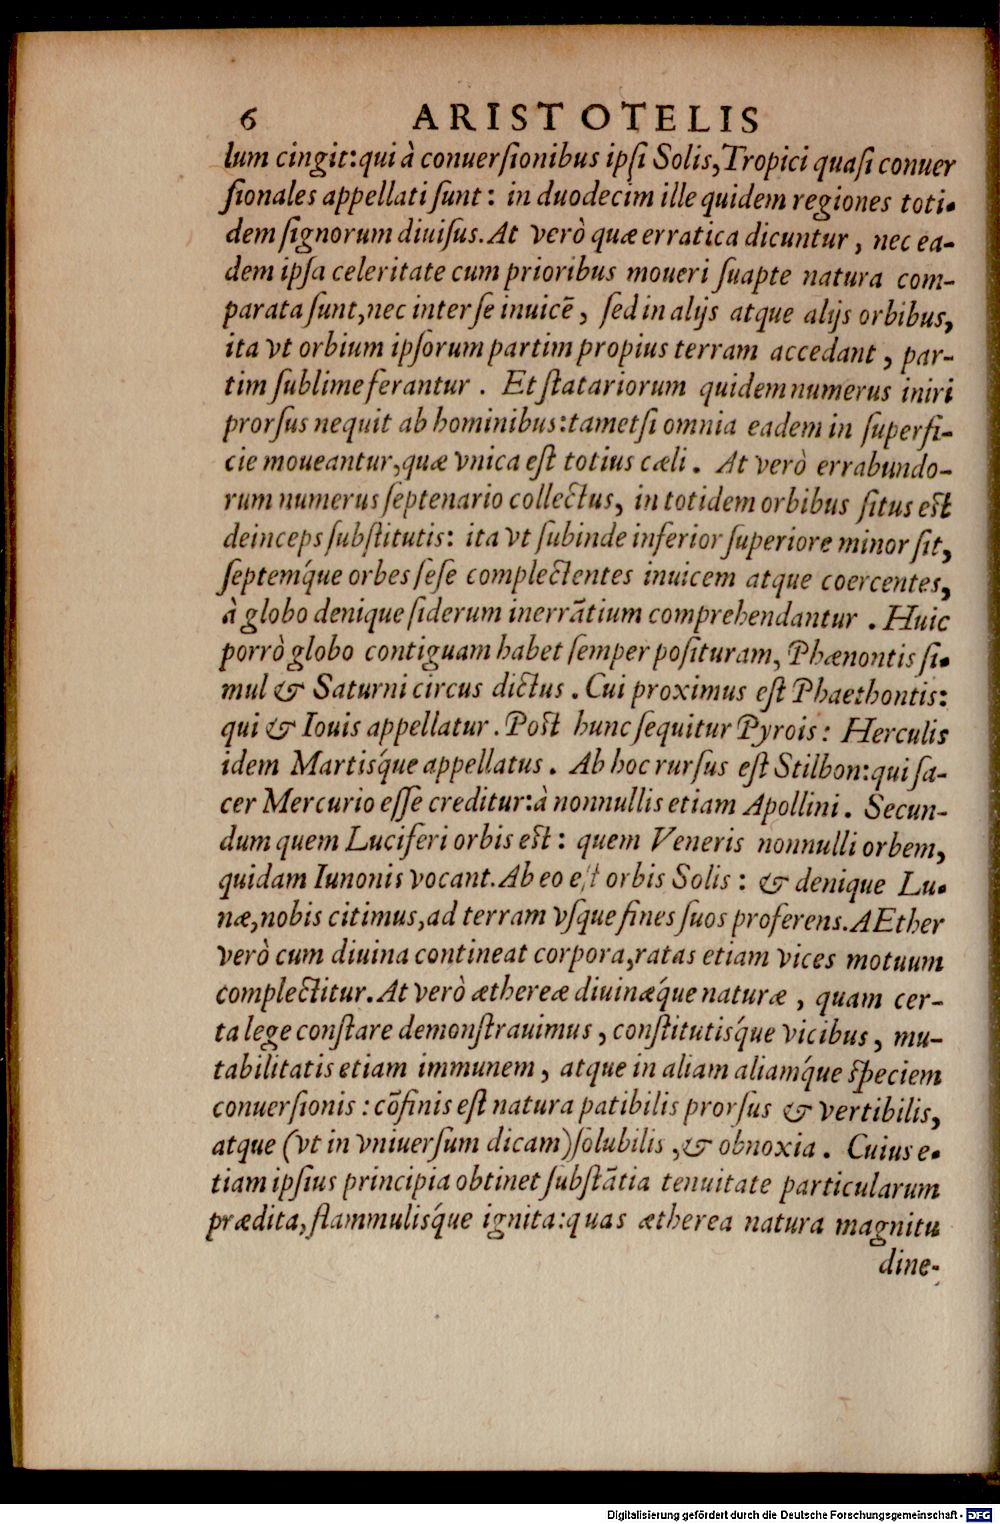 6 ARISTOTELIS
lum cingit: qui à conuerſionibus ipſi Solis, Tropici quaſi conuer
ſionales appellati ſunt: in duodecim ille quidem regiones toti-
dem ſignorum diuiſus. At verò quæ erratica dicuntur, nec ea-
dem ipſa celeritate cum prioribus moueri ſuapte natura com-
parata ſunt, nec inter ſe inuicē, ſed in alijs atque alijs orbibus,
ita vt orbium ipſorum partim propius terram accedant, par-
tim ſublime ferantur. Et ſtatariorum quidem numerus iniri
prorſus nequit ab hominibus: tametſi omnia eadem in ſuperfi-
cie moueantur, quæ vnica eſt totius cæli. At verò errabundo-
rum numerus ſeptenario collectus, in totidem orbibus ſitus eſt
deinceps ſubſtitutis: ita vt ſubinde inferior ſuperiore minor ſit,
ſeptemq́ue orbes ſeſe complectentes inuicem atque coercentes,
à globo denique ſiderum inerrātium comprehendantur. Huic
porrò globo contiguam habet ſemper poſituram, Phænontis ſi-
mul & Saturni circus dictus. Cui proximus eſt Phaethontis:
qui & Iouis appellatur. Poſt hunc ſequitur Pyrois: Herculis
idem Martisq́ue appellatus. Ab hoc rurſus eſt Stilbon: qui ſa-
cer Mercurio eſſe creditur: à nonnullis etiam Apollini. Secun-
dum quem Luciferi orbis eſt: quem Veneris nonnulli orbem,
quidam Iunonis vocant. Ab eo eſt orbis Solis: & denique Lu-
næ, nobis citimus, ad terram vſque fines ſuos proferens. AEther
verò cum diuina contineat corpora, ratas etiam vices motuum
complectitur. At verò æthereæ diuinæq́ue naturæ, quam cer-
ta lege conſtare demonſtrauimus, conſtitutisq́ue vicibus, mu-
tabilitatis etiam immunem, atque in aliam aliamq́ue ſpeciem
conuerſionis: cōfinis eſt natura patibilis prorſus & vertibilis,
atque (vt in vniuerſum dicam) ſolubilis, & obnoxia. Cuius e-
tiam ipſius principia obtinet ſubſtātia tenuitate particularum
prædita, flammulisq́ue ignita: quas ætherea natura magnitu
dine-
Digitalisierung gefördert durch die Deutsche Forschungsgemeinschaft - DFG